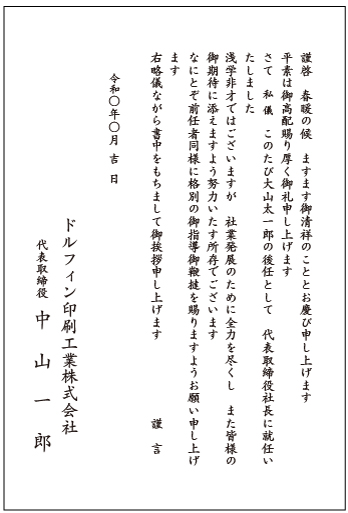 謹啓　春暖の候　ますます御清祥のこととお慶び申し上げます
平素は御高配賜り厚く御礼申し上げます
さて　私儀　このたび大山太一郎の後任として　代表取締役社長に就任い
たしました
浅学非才ではございますが　社業発展のために全力を尽くし　また皆様の
御期待に添えますよう努力いたす所存でございます
なにとぞ前任者同様に格別の御指導御鞭撻を賜りますようお願い申し上げ
ます
右略儀ながら書中をもちまして御挨拶申し上げます　謹言
令和〇年〇月吉日
ドルフィン印刷工業株式会社
代表取締役　中山一郎